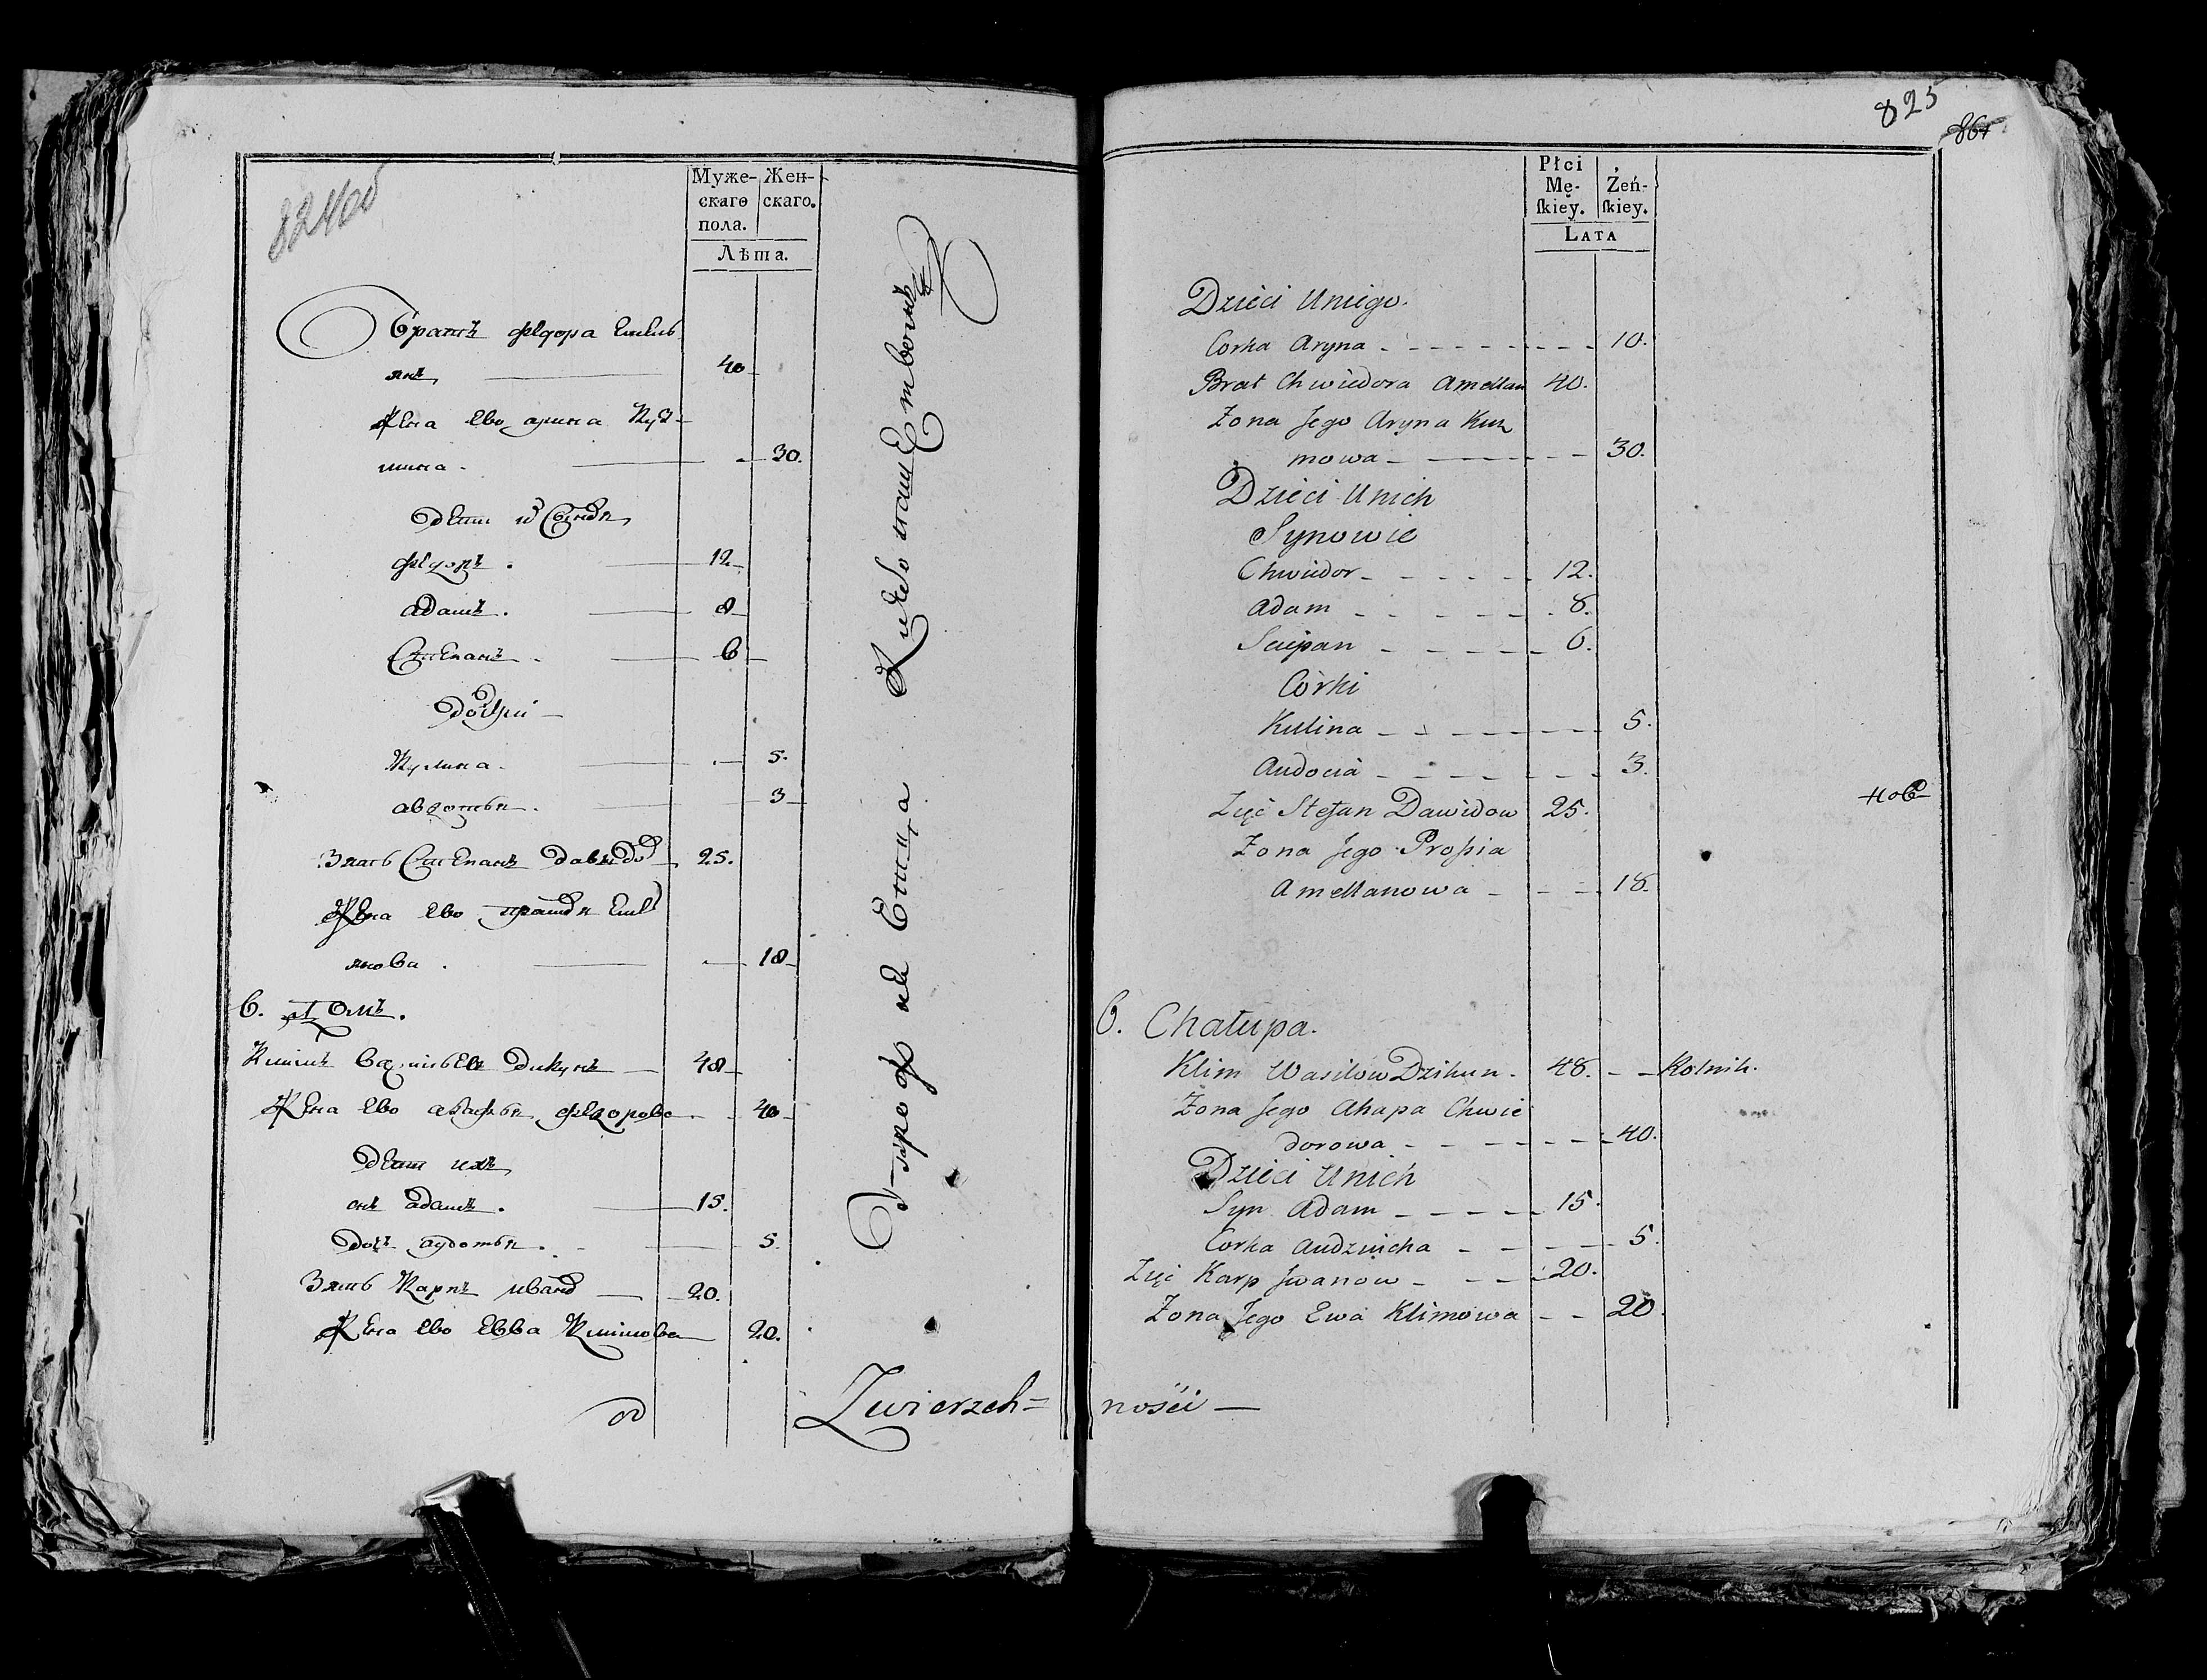 824об
Муже- Жен-
скаго скаго.
пола.
Лѣта.
Братъ Федора Емель
янъ 40
Жена ево арина Куз-
мина. 30.
дети и Сыновя
Федоръ. 12
адамъ. 8
Степанъ 6
дочери
Кулина. 5.
авдотья. 3
Зять Степанъ давыдов 25.
Жена ево Емел
янова. 18
6. Домъ.
Климъ Василье Дикунъ 48
Жена ево агафья Федорова 40
Дети ихъ
снъ адамъ. 15.
дочъ аудотья. 5.
Зять Карпъ иванов 20.
Жена ево Евва Климова 20.
од Zwierzch=
825
861
Płci
Mę- Żeń-
skiey. skiey.
LATA
Dzieci Uniego.
Corka Aryna 10.
Brat Chwiedora Amellan 40.
Zona Jego Aryna Kuz
mowa 30.
Dzieci Unich
Synowie
Chwiedor 12.
Adam 8.
Sciepan 6.
Córki
Kulina 5.
Audocia 3.
нов
Zięć Stefan Dawidow 25.
Zona Jego Prosia
Amellanowa 18.
6. Chałupa.
Klim Wasilow Dzikun 48. Rolnik.
Zona Jego Ahapa Chwie
dorowa 40.
Dzieci Unich
Syn Adam 15.
Corka Audziucha 5.
Zięć Karp Jwanow 20.
Zona Jego Ewa Klimowa 20.
ności